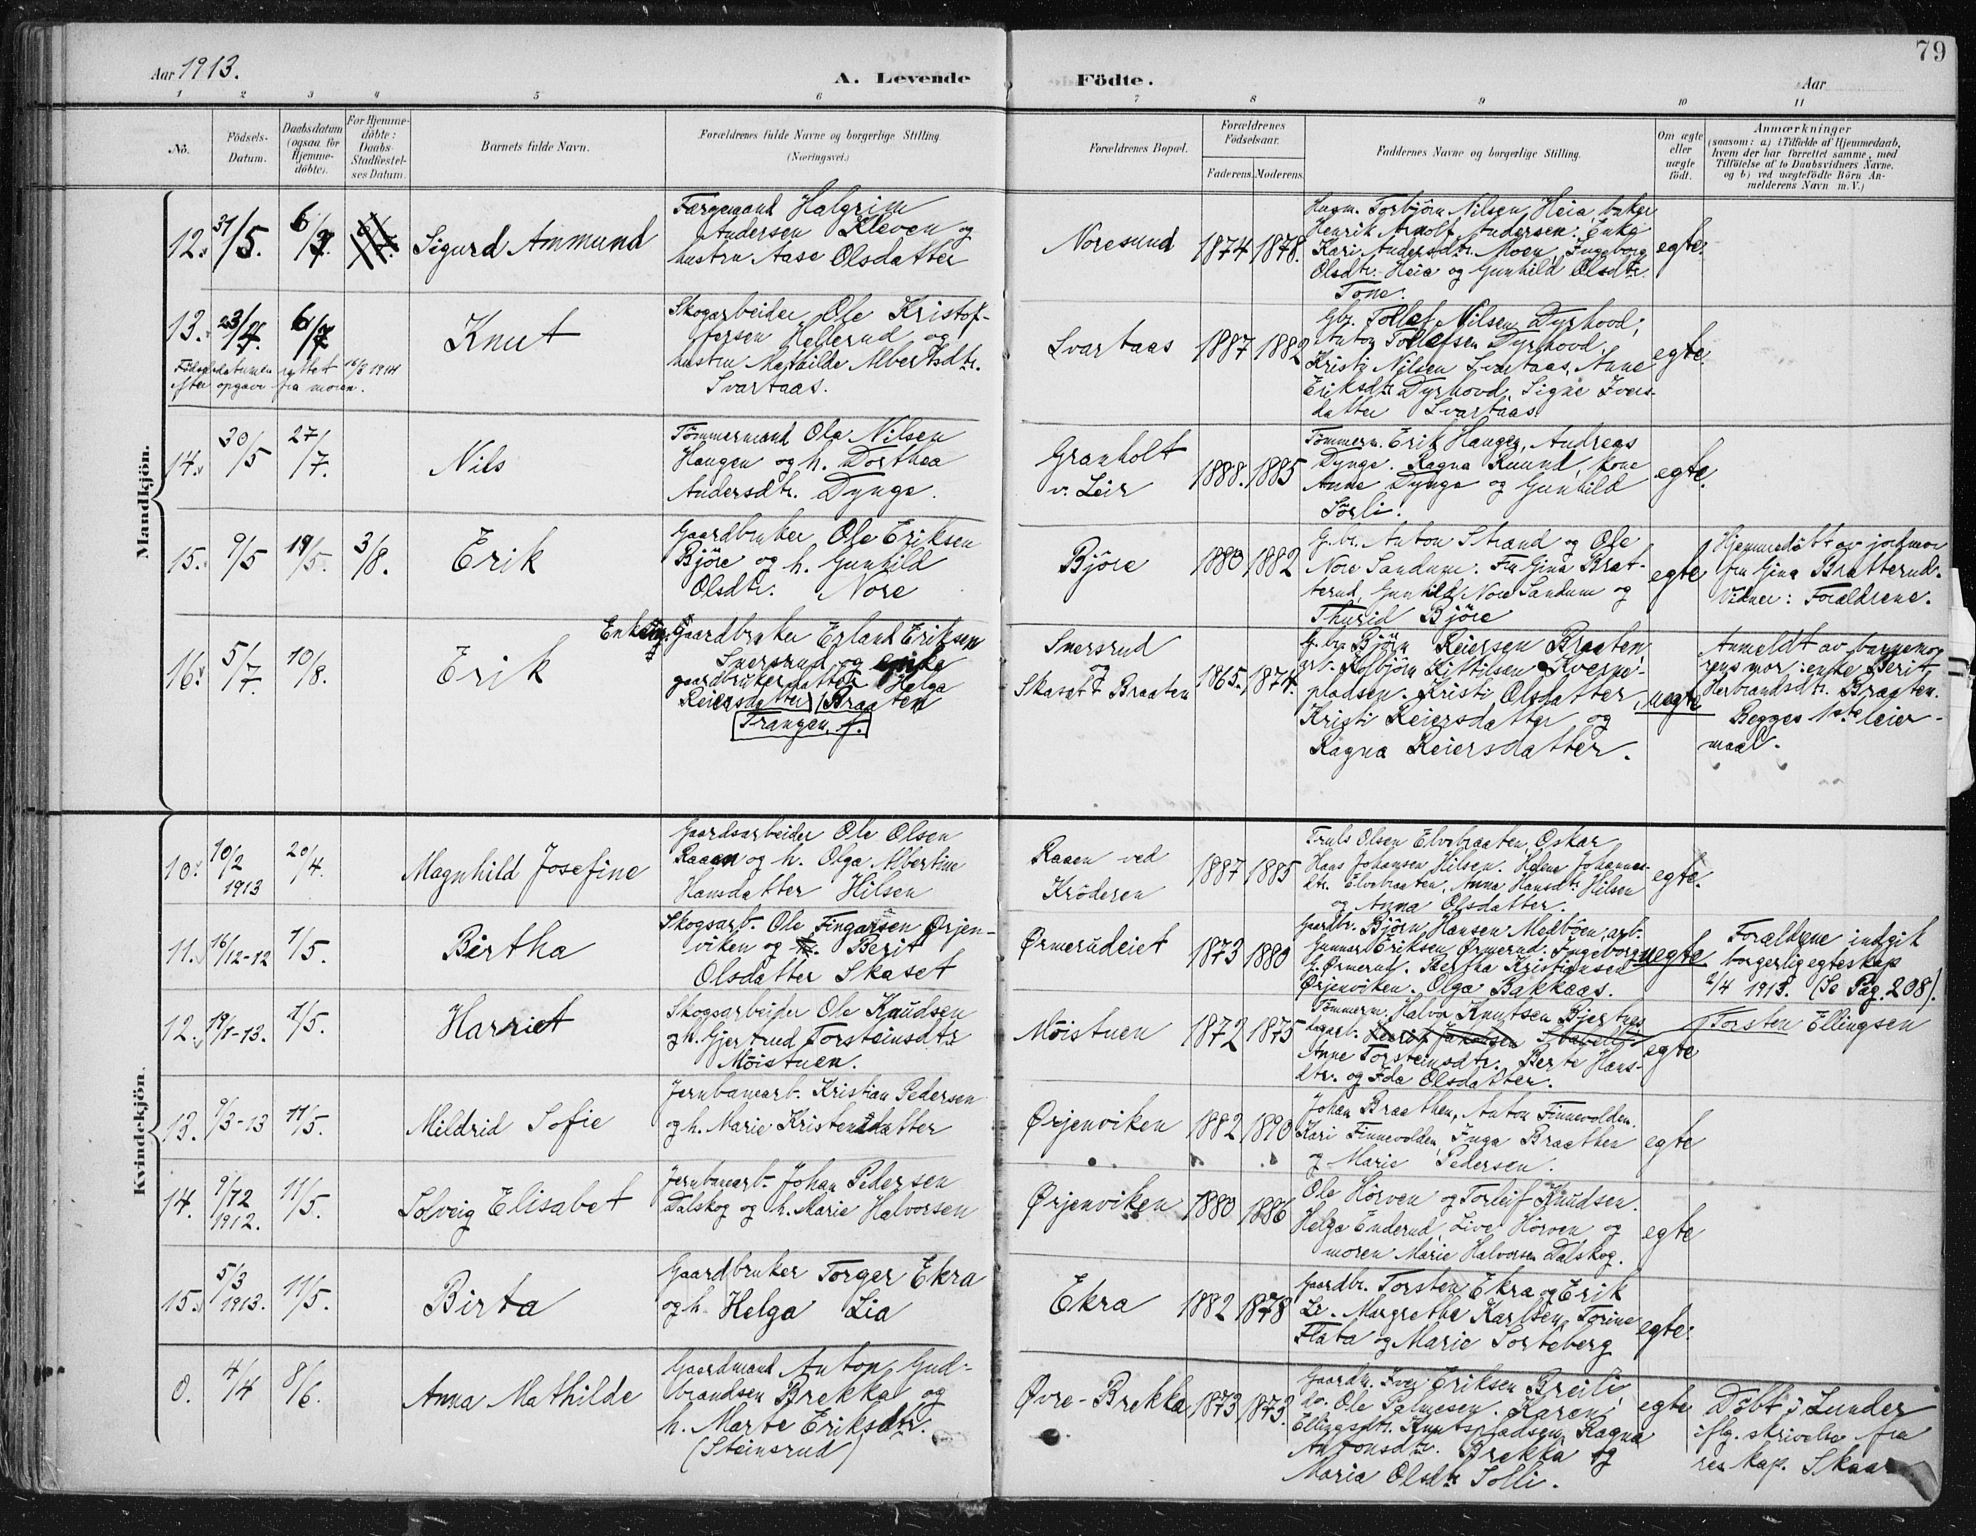 79
Aar 1913.
A. Levende Födte.
Aar
1 2 3 4 5 6 7 8 9 10 11
No.
Födsels-
Datum.
Daabsdatum
(ogsaa for
Hjemme-
döbte).
For Hjemme-
döbte:
Daabs-
Stadfæstel-
ses Datum.
Barnets fulde Navn.
Forældrenes fulde Navne og borgerlige Stilling.
(Næringsvei.)
Forældrenes Bopæl.
Forældrenes
Födselsaar.
Faderens. Moderens.
Faddernes Navne og borgerlige Stilling.
Om ægte
eller
uægte
födt.
Anmærkninger
(saasom: a) i Tilfælde af Hjemmedaab,
hvem der har forrettet samme, med
Tilföielse af to Daabsvidners Navne,
og b) ved uægtefödte Börn An-
melderens Navn m. V.)
Mandkjön.
12. 31/5. 6/7. Sigurd Ammund
Færgemand Halgrim
Andersen Kleven og
hustru Aase Olsdatter
Noresund 1874 1878.
Hagm. Torbjörn Nilsen Heia, buker
Henrik Arnolf Andersen. Enke
Kari Andersdtr. Moen, Ingeborg
Olsdtr. Heia og Gunhild Olsdtr.
Tone.
egte.
13. 23/4. 6/7 Knut
Födselsdatumen rettet 16/6 1914
efter opgave fra moren.
Skogarbeider Ole Kristof-
fersen Hellerud og
hustru Mathilde Albertsdtr.
Svartaas.
Svartaas 1887 1882
Gbr. Tollef Nilsen Dyrhovd,
Anton Tollefsen Dyrhovd,
Kristi Nilsen Svartaas, Anne
Eriksdtr. Dyrhovd, Signe Ivers-
datter Svartaas
egte.
14. 30/5 27/7 Nils
Tömmermand Ole Nilsen
Haugen og h. Dorthea
Andersdtr. Dynge.
Granholt
v. Leir
1888. 1885
Tömmerm. Erik Haugen, Andreas
Dynge. Ragna Ruund, kone
Anne Dynge og Gunhild
Sörli.
egte.
15. 9/5 19/5. 3/8. Erik
Gaardbruker Ole Eriksen
Björe og h. Gunhild
Olsdtr. Nore
Björe 1880 1882
G.br. Anton Strand og Ole
Nore Sandum. Fru Gina Brat-
terud, Gunhild Nore Sandum og
Thurid Björe
egte
Hjemmedöbt av jordmor
fru Gina Bratterud.
Vidner: Forældrene.
16. 5/7. 10/8. Erik
Enkem. Gaardbruker Erland Eriksen
Snersrud og enke
gaardbrukerdatter Helga
Reiersdatter Braaten
Trangen, f.
Snersrud
og
Skasett Braaten
1865. 1874.
G.br. Björn Reiersen Braaten,
arb. Kolbjörn Kittilsen Kverne-
pladsen. Kristi Olsdatter,
Kristi Reiersdatter og
Ragna Reiersdatter.
uegte
Anmeldt av barnemo-
rens mor: enke Berit
Herbrandsdtr. Braaten.
Begges 1ste leier-
maal.
Kvindekjön.
10. 10/2 1913 20/4. Magnhild Josefine
Gaardsarbeider Ole Olsen
Raaen og h. Olga Albertine
Hansdatter Hilsen
Raaen ved
Kröderen
1887 1885
Truls Olsen Elvebraaten, Oskar
Hans Johansen Hilsen. Helene Johannes-
dtr. Elvebraaten, Anna Hansdtr. Hilsen
og Anna Olsdatter.
egte.
11. 16/12-12 1/5. Birtha
Skogsarb. Ole Fingarsen Ørjen-
viken og Berit
Olsdatter Skaset
Ørmerudeiet 1873 1880
Gaardbr. Björn Hansen Medböen, arb.
Gunnar Eriksen Ørmerud. Ingeborg
G. Ørmerud. Bertha Kristiansen
Ørjenviken. Olga Bakkaas.
uegte
Forældrene indgik
borgerlig egteskap
2/4 1913. (Se Pag. 208).
12. 19/1-13. 1/5. Harriet
Skogsarbeider Ole Knudsen
og h. Gjertrud Torsteinsdtr
Möistuen.
Möistuen 1872 1875
Tömmerm. Halvor Knutsen Bjertnes
Anne Torsteinsdtr. Berte Hans-
dtr. og Ida Olsdatter.
egte
Torsten Ellingsen
13. 9/3-13 11/5. Mildrid Sofie
Jernbanearb. Kristian Pedersen
og h. Marie Kristensdatter
Ørjenviken 1882 1890
Johan Braathen, Anton Finnevolden.
Kari Finnevolden, Inga Braathen
og Marie Pedersen.
egte
14. 9/12 1912. 11/5. Solveig Elisabet
Jernbanearb. Johan Pedersen
Dalskog og h. Marie Halvorsen
Ørjenviken 1880 1886
Ole Hörven og Torleif Knudsen.
Helga Enderud, Live Hörven og
moren Marie Halvorsen Dalskog.
egte
15. 5/3 1913. 11/5. Birta
Gaardbruker Torger Ekra
og h. Helga Lia
Ekra 1882 1878
Gaardbr. Torsten Ekra og Erik
Lr. Margrethe Karlsen, Torine
Flata og Marie Sorteberg
egte.
0. 4/4 8/6. Anna Mathilde
Gaardmand Anton Gud-
brandsen Brekka og
h. Marte Eriksdtr.
(Steinsrud)
Øvre-Brekka 1873 1873.
Gaardm. Iver Eriksen Breili,
do. Ole Palmesen. Karen
Ellingsdtr. Knutspladsen, Ragna
Antonsdtr. Brekka og
Maria Olsdtr. Solli.
egte
Döbt i Lunder
iflg. skrivelse fra
res. kap. Skaar